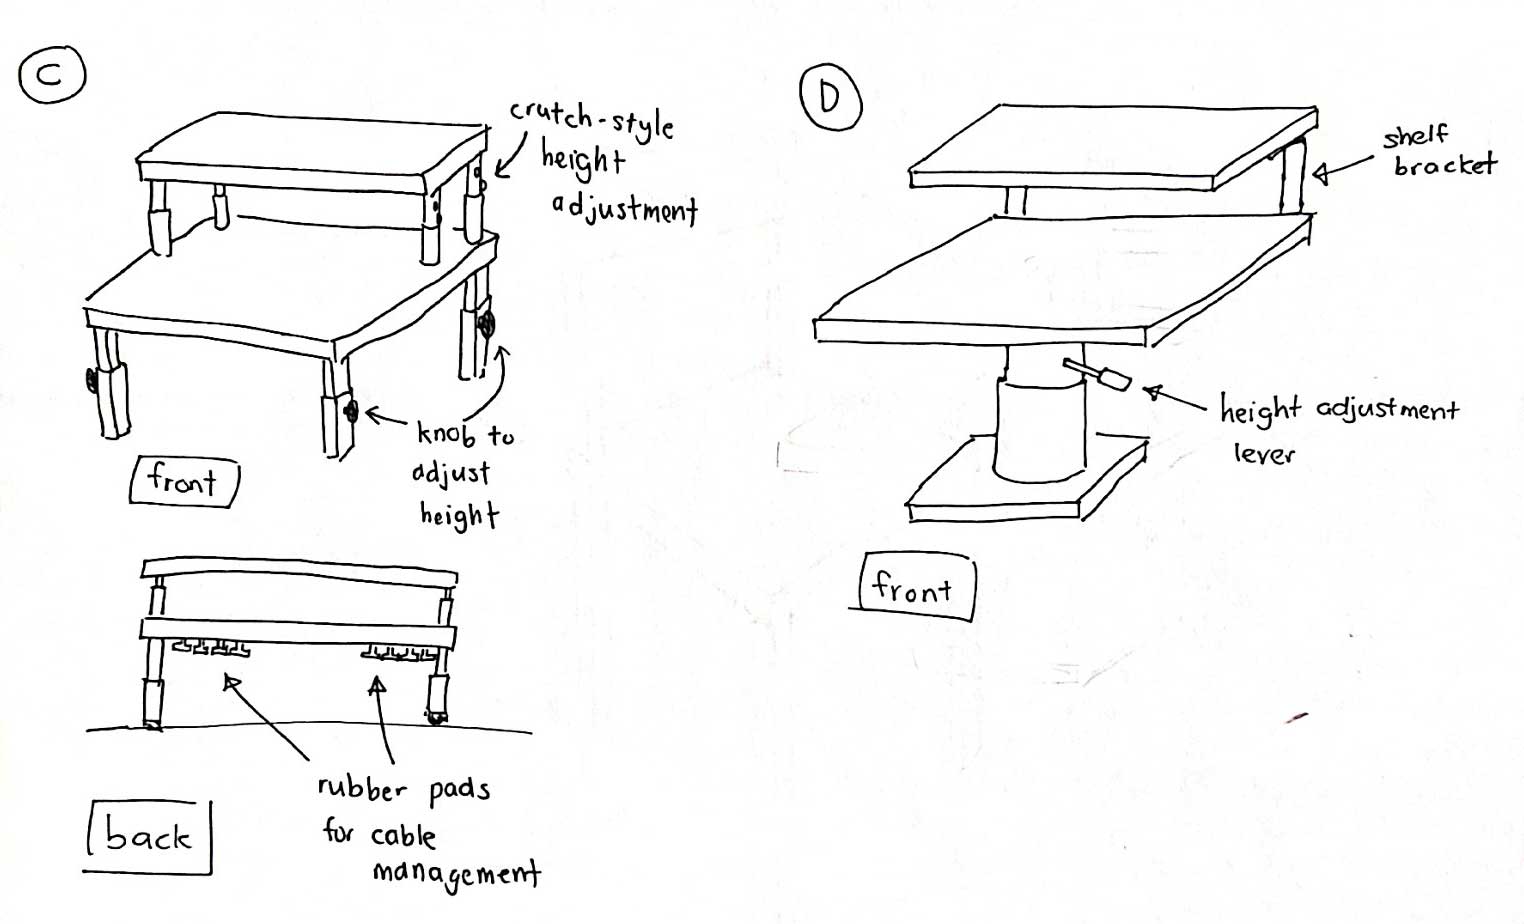 C
crutch-style
height
adjustment
knob to
adjust
height
front
rubber pads
for cable
management
back
D
shelf
bracket
height adjustment
lever
front